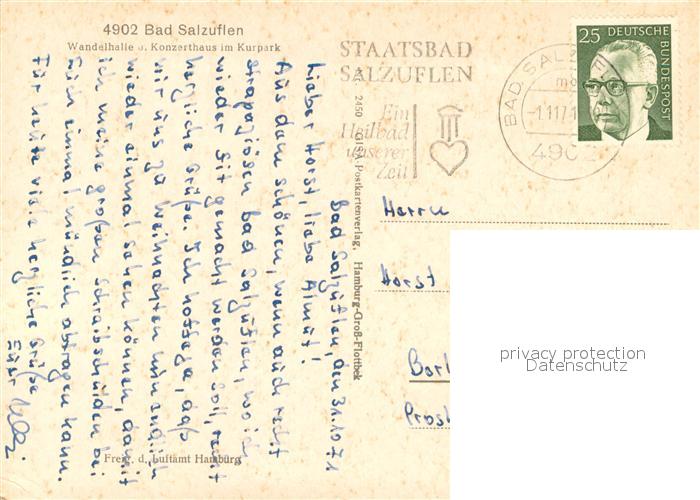 4902 Bad Salzuflen
Wandelhalle u. Konzerthaus im Kurpark
STAATSBAD
SALZUFLEN
Ein
Heilbad
unserer
Zeit
BAD SALZUFLEN
-1.11.71
4902
25 DEUTSCHE
BUNDESPOST
2450 GISA-Postkartenverlag, Hamburg-Groß-Flottbek
Bad Salzuflen, den 31.10.71
Lieber Horst, liebe Almut!
Aus dem schönen, wenn auch recht
strapaziösen Bad Salzuflen, wo ich
wieder fit gemacht werden soll, recht
herzliche Grüße. Ich hoffe ja, daß
wir uns zu Weihnachten nun endlich
wieder einmal sehen können, damit
ich meine großen Schreibschulden bei
Euch einmal mündlich abtragen kann.
Für heute viele herzliche Grüße
Euer
Herrn
Horst
Freig. d. Luftamt Hamburg
privacy protection
Datenschutz